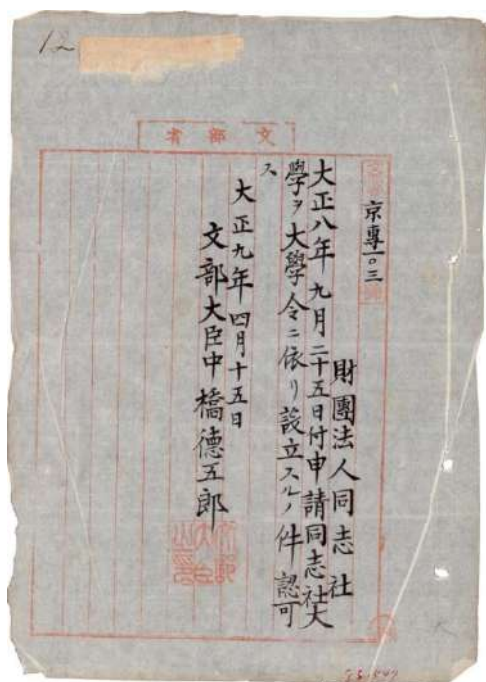 12
文部省
京專一〇三
財團法人同志社
大正八年九月二十五日付申請同志社大
學ヲ大學令ニ依リ設立スルノ件認可
ス
大正九年四月十五日
文部大臣中橋德五郎